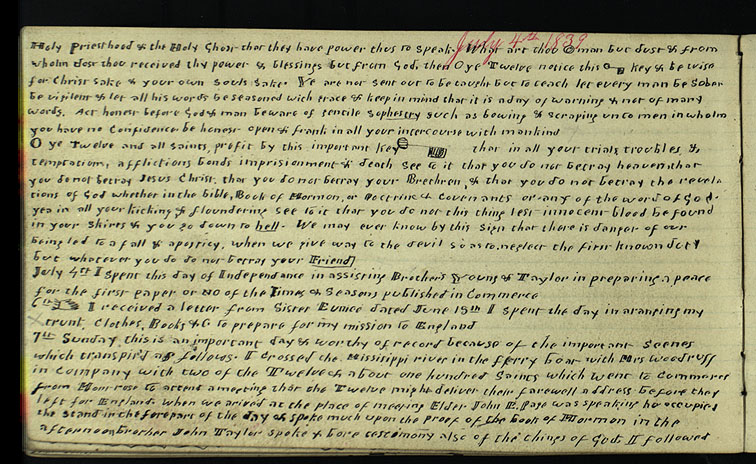 July 4th 1839
Holy Priesthood & the Holy Ghost that they have power thus to speak. What art thou O man but dust & from
whom dost thou received thy power & blessings but from God, then O ye Twelve notice this Key & be wise
for Christ sake & your own souls sake. Ye are not sent out to be taught but to teach let every man be sober
be vigilent & let all his words be seasoned with grace & keep in mind that it is a day of warning & not of many
words. Act honest before God & man beware of gentile sophestry such as bowing & scraping unto men in whom
you have no confidence be honest open & frank in all your intercourse with mankind
O ye Twelve and all saints, profit by this important Key that in all your trials, troubles, &
temptations, afflictions bonds imprisionment & death see to it that you do not betray heaven that
you do not betray Jesus Christ, that you do not betray your Brethren, & that you do not betray the revela
tions of God whether in the bible, Book of Mormon, or Doctrine & Covenants or any of the word of God.
yea in all your kicking & floundering see to it that you do not this thing lest innocent blood be found
in your skirts & you go down to hell. We may ever know by this sign that there is danger of our
being led to a fall & aposticy, when we give way to the devil so as to neglect the first known duty
but whatever you do do not betray your Friend
July 4th I spent this day of Independance in assisting Brothers Young & Taylor in preparing a peace
for the first paper or No of the Times & Seasons published in Commerce
6th I received a letter from Sister Eunice dated June 15th I spent the day in aranging my
trunk, Clothes, Books &c to prepare for my mission to England
7th Sunday this is an important day & worthy of record because of the important scenes
which transpir'd as follows. I crossed the Missisippi river in the ferry boat with Mrs Woodruff
in company with two of the Twelve & about one hundred Saints which went to Commerce
from Montrose to attend a meeting that the Twelve might deliver their farewell address before they
left for England. when we arived at the place of meeting Elder John E. Page was speaking he occupied
the stand in the forepart of the day & spoke much upon the proof of the book of Mormon in the
afternoon brother John Taylor spoke & bore testimony also of the things of God, I followed